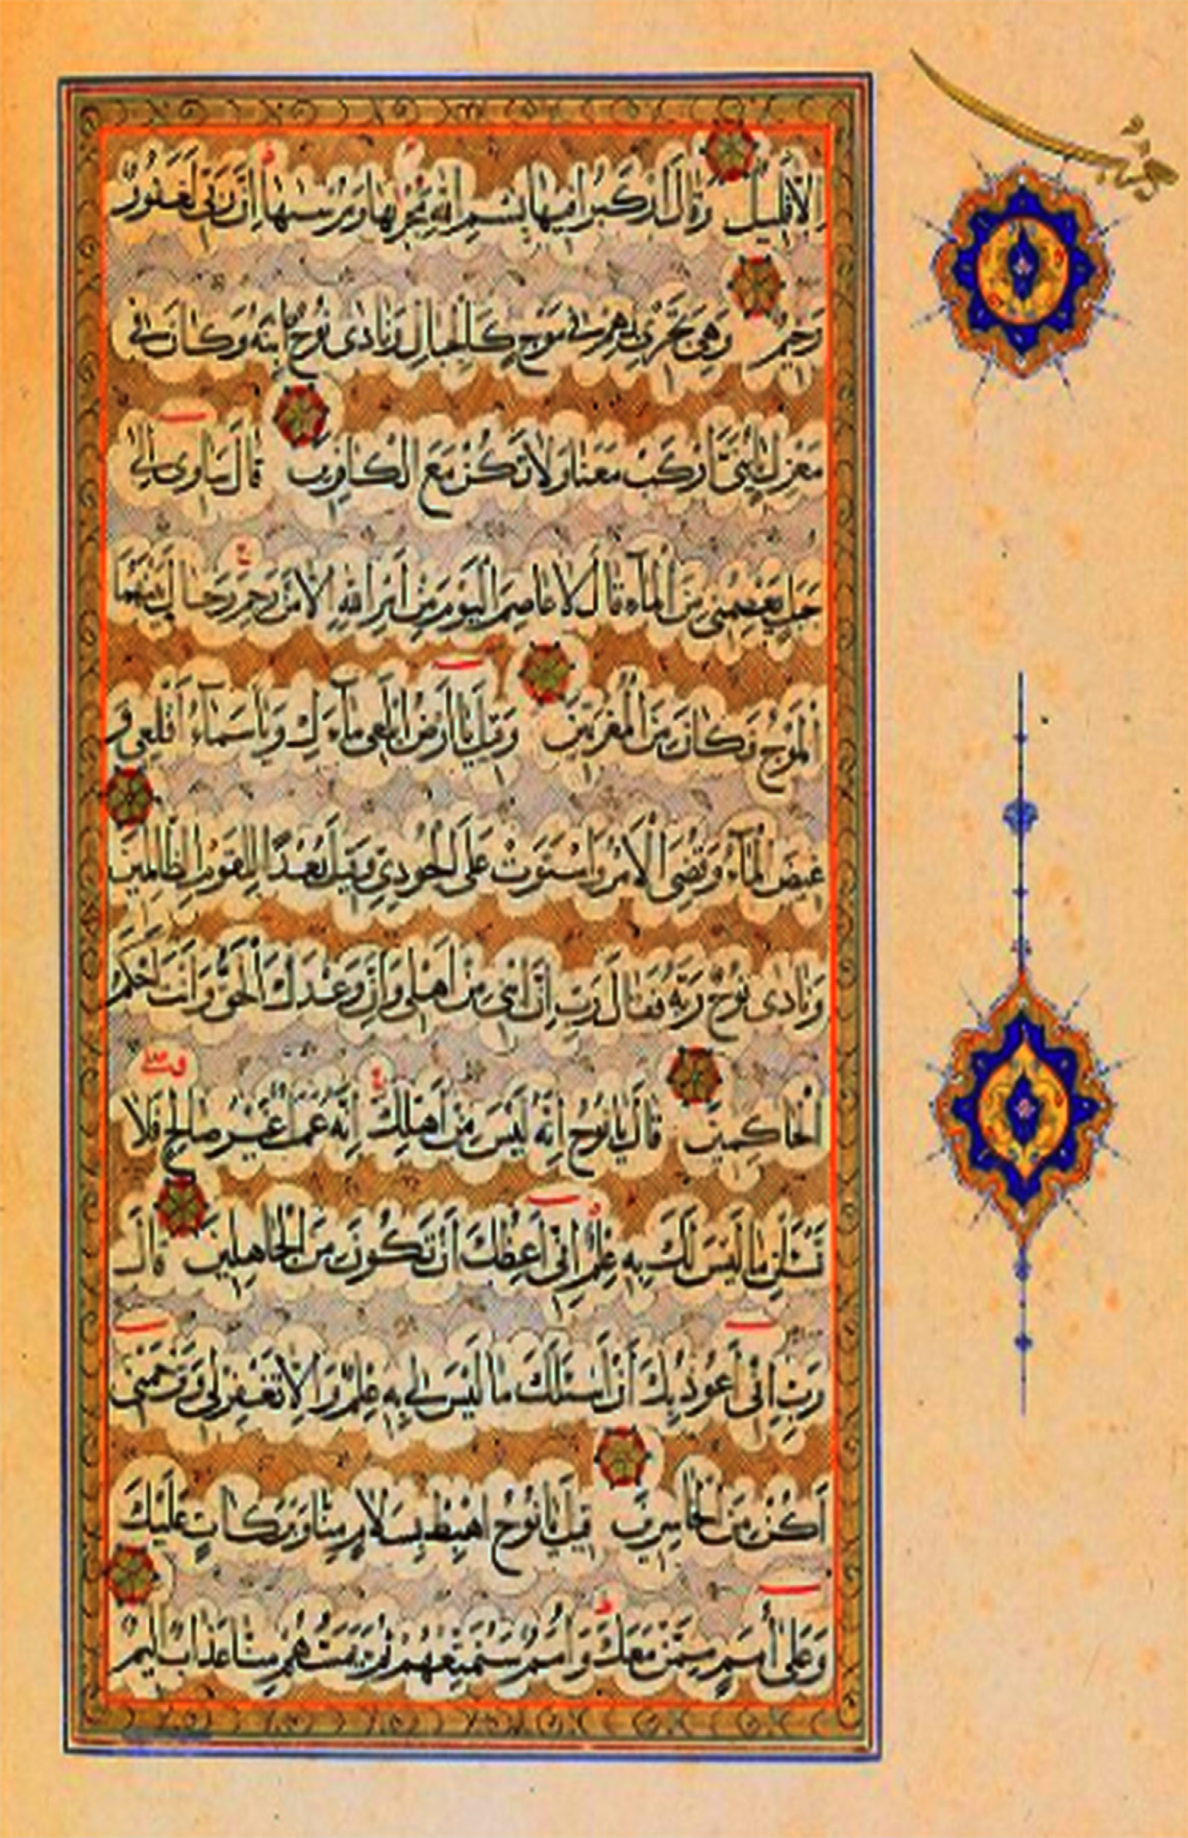 الا قليل وقال اركبوا فيها بسم الله مجريها ومرسيها ان ربي لغفور
رحيم وهي تجري بهم في موج كالجبال ونادى نوح ابنه وكان في
معزل يا بني اركب معنا ولا تكن مع الكافرين قال ساوي الى
جبل يعصمني من الماء قال لا عاصم اليوم من امر الله الا من رحم وحال بينهما
الموج فكان من المغرقين وقيل يا ارض ابلعي ماءك ويا سماء اقلعي و
غيض الماء وقضي الامر واستوت على الجودي وقيل بعدا للقوم الظالمين
ونادى نوح ربه فقال رب ان ابني من اهلي وان وعدك الحق وانت احكم
الحاكمين قال يا نوح انه ليس من اهلك انه عمل غير صالح فلا
تسئلن ما ليس لك به علم اني اعظك ان تكون من الجاهلين قال
رب اني اعوذ بك ان اسئلك ما ليس لي به علم والا تغفر لي وترحمني
اكن من الخاسرين قيل يا نوح اهبط بسلام منا وبركات عليك
وعلى امم ممن معك وامم سنمتعهم ثم يمسهم منا عذاب اليم